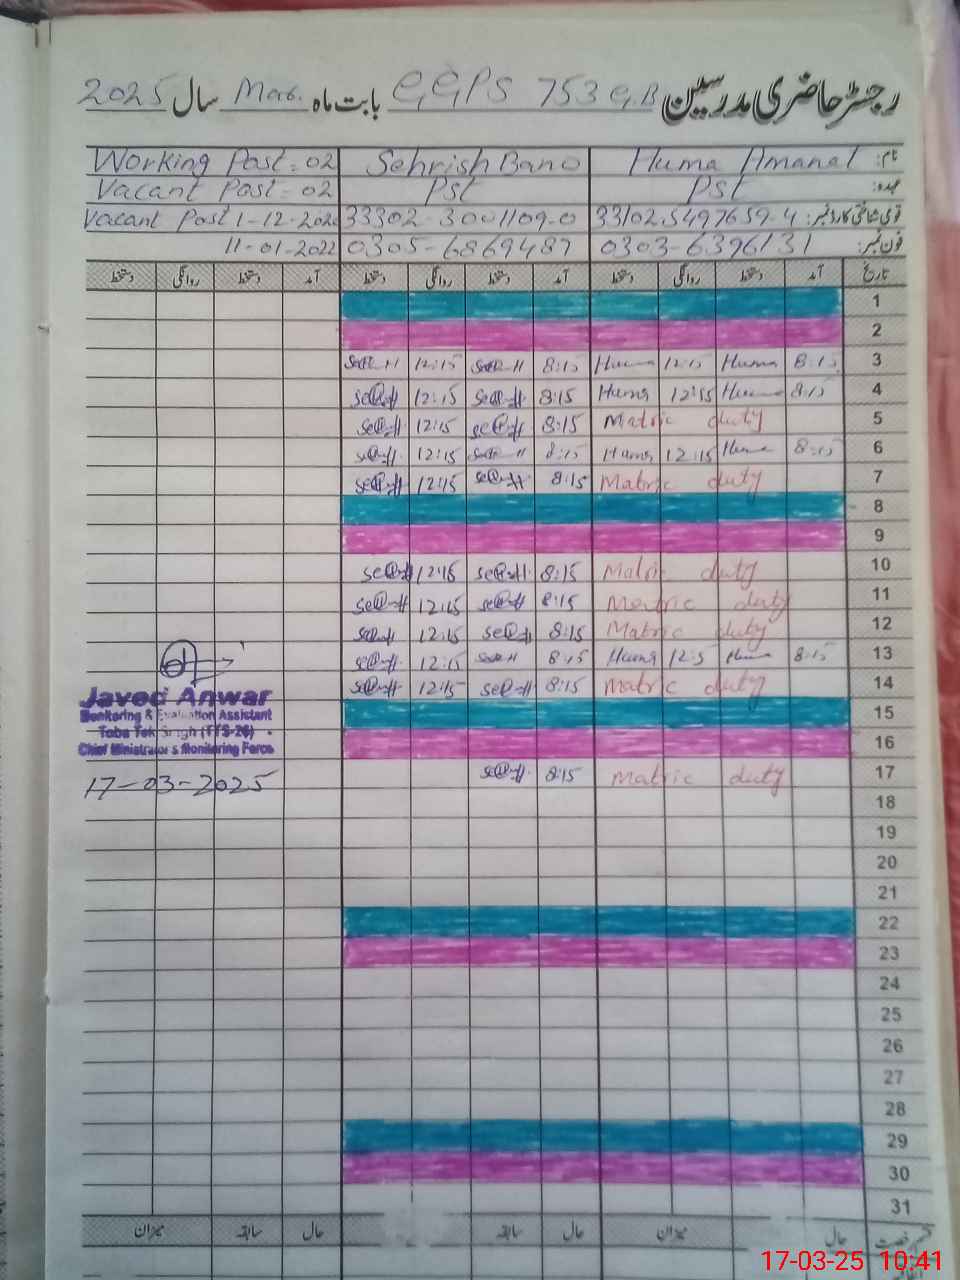 رجسٹر حاضری مدرسین GGPS 753 G.B بابت ماہ Mar. سال 2025
نام: Huma Amanat Sehrish Bano Working Post = 02
عہدہ: Pst Pst Vacant Post = 02
قومی شناختی کارڈ نمبر: 33102.5497659-4 33302-3001109-0 Vacant Post 1-12-2020
فون نمبر: 0303-6396131 0305-6869487 11-01-2022
تاریخ آمد دستخط روانگی دستخط آمد دستخط روانگی دستخط آمد دستخط روانگی دستخط
1
2
3 8:15 Huma 12:15 Huma 8:15 12:15
4 8:15 Huma 12:15 Huma 8:15 12:15
5 Matric duty 8:15 12:15
6 8:15 Huma 12:15 Huma 8:15 12:15
7 Matric duty 8:15 12:15
8
9
10 Matric duty 8:15 12:15
11 Matric duty 8:15 12:15
12 Matric duty 8:15 12:15
13 8:15 Huma 12:5 Huma 8:15 12:15
14 Matric duty 8:15 12:15
15
16
17 Matric duty 8:15
18
19
20
21
22
23
24
25
26
27
28
29
30
31
Javed Anwar
Monitoring & Evaluation Assistant
Toba Tek Singh (TTS-26)
Chief Minister's Monitoring Force
17-03-2025
حال میزان حال سابقہ حال سابقہ میزان
17-03-25 10:41